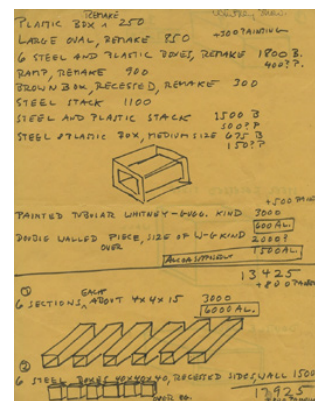 REMAKE
PLASTIC BOX 250
LARGE OVAL, REMAKE 850 +300 PAINTING
6 STEEL AND PLASTIC BOXES, REMAKE 1800 B.
400? P.
RAMP, REMAKE 900
BROWN BOX, RECESSED, REMAKE 300
STEEL STACK 1100
STEEL AND PLASTIC STACK 1500 B
500? P
STEEL & PLASTIC BOX, MEDIUM SIZE 675 B
150? P
+500
PAINTED TUBULAR WHITNEY-GUGG. KIND 3000
6000 AL.
DOUBLE WALLED PIECE, SIZE OF W-G KIND 2000?
OVER 1500 AL.
13425
+800
① EACH
6 SECTIONS, ABOUT 4X4X15 3000
6000 AL.
②
6 STEEL BOXES 40X40X40, RECESSED SIDES, WALL 1500
OVER
17925